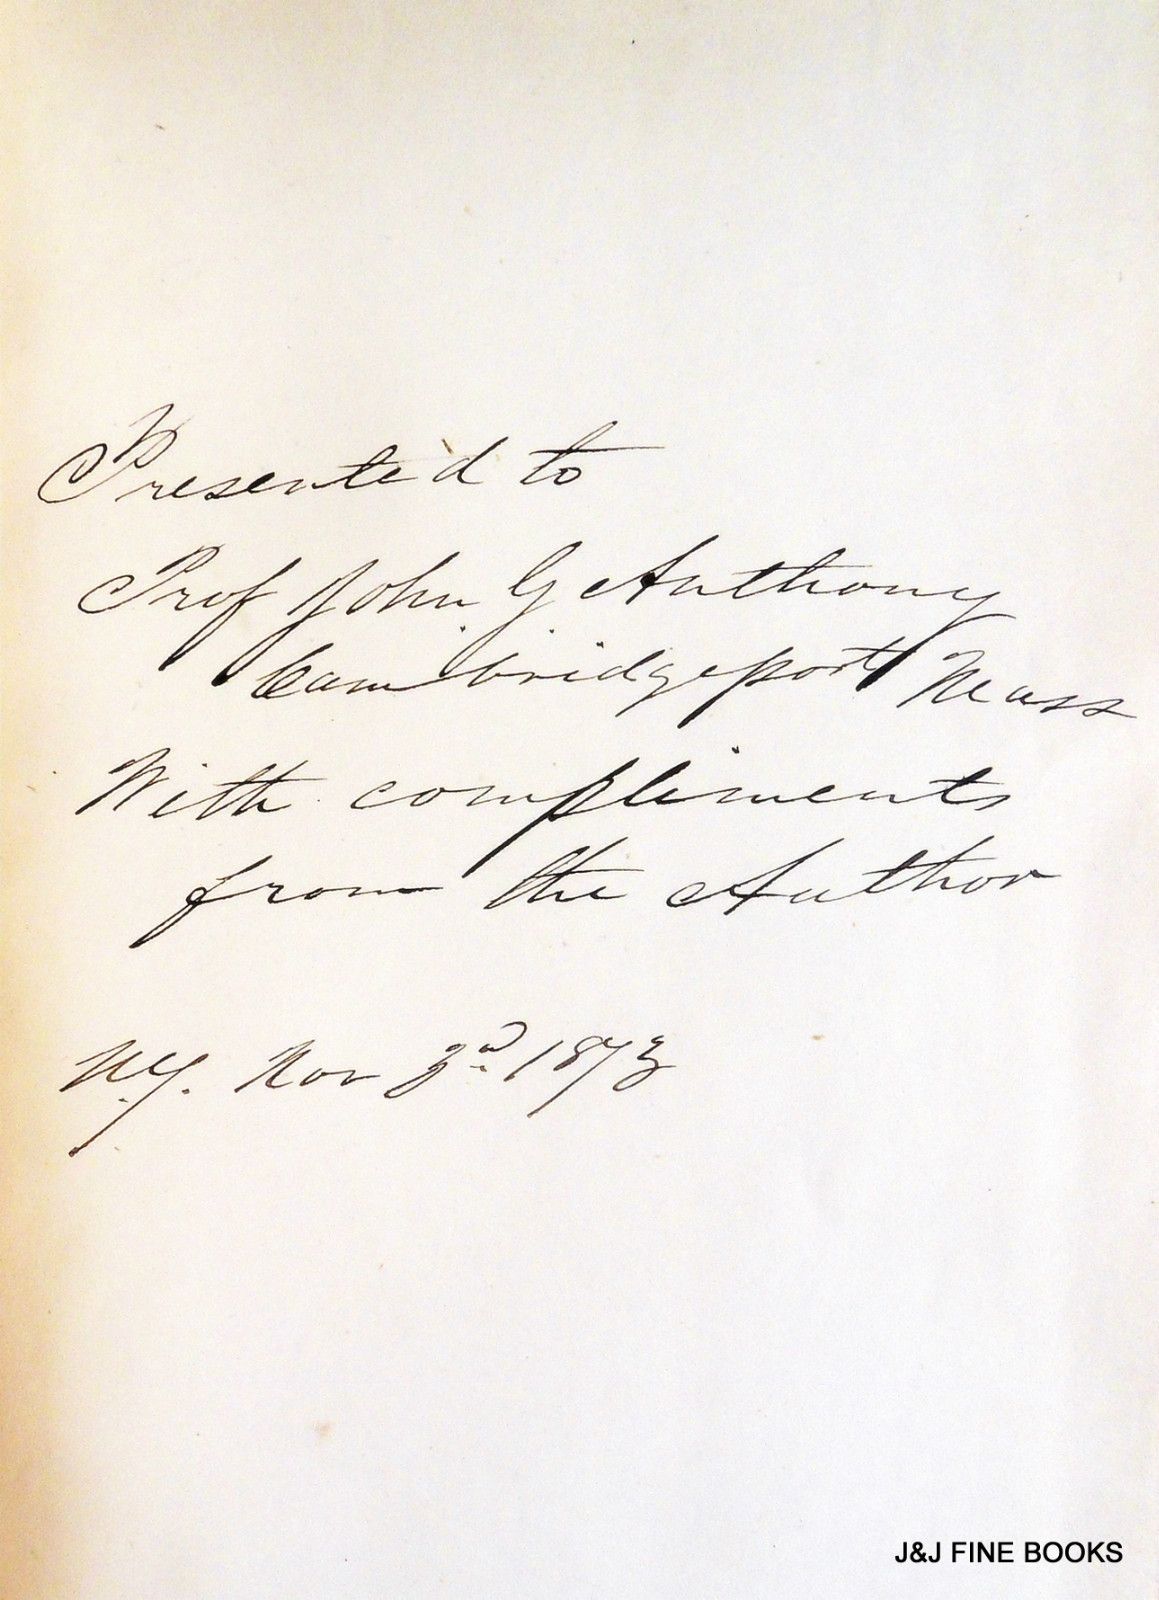 Presented to
Prof John G Anthony
Cambridgeport Mass
With compliments
from the Author
N.Y. Nov 3d 1873
J&J FINE BOOKS